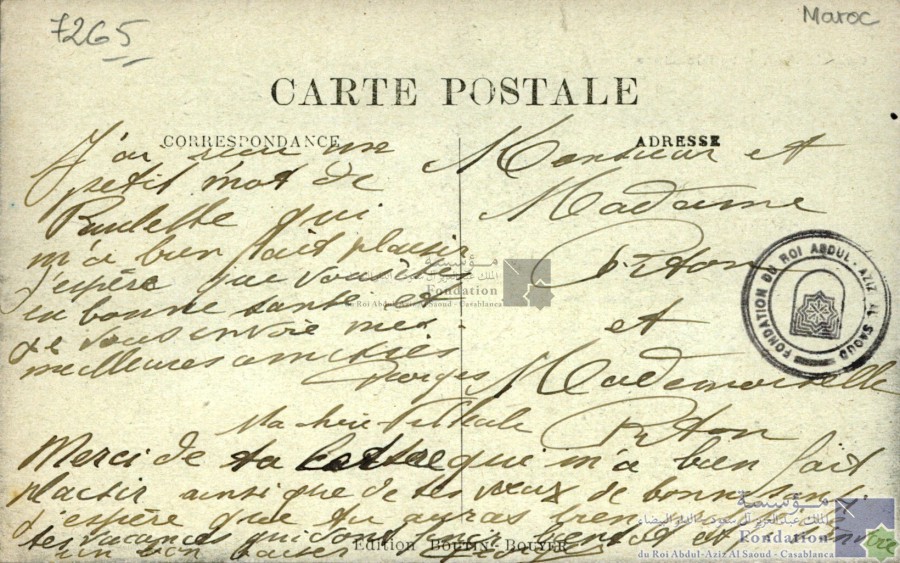 7265
Maroc
CARTE POSTALE
CORRESPONDANCE
ADRESSE
J'ai reçu un
petit mot de
Paulette qui
m'a bien fait plaisir
J'espère que vous êtes
en bonne santé et
je vous envoie mes
meilleures amitiés
Georges
Monsieur et
Madame
Piton
et
Mademoiselle
Piton
Ma chère
Merci de ta lettre qui m'a bien fait
plaisir ainsi que de tes vœux de bonne
J'espère que tu auras bien
tes vacances qui sont
un bon baiser
Edition BOUTIN-BOUYER
FONDATION DU ROI ABDUL-AZIZ AL SAOUD
مؤسسة
الملك عبد العزيز آل سعود - الدار البيضاء
Fondation
du Roi Abdul-Aziz Al Saoud - Casablanca
مؤسسة
الملك عبد العزيز آل سعود - الدار البيضاء
Fondation
du Roi Abdul-Aziz Al Saoud - Casablanca